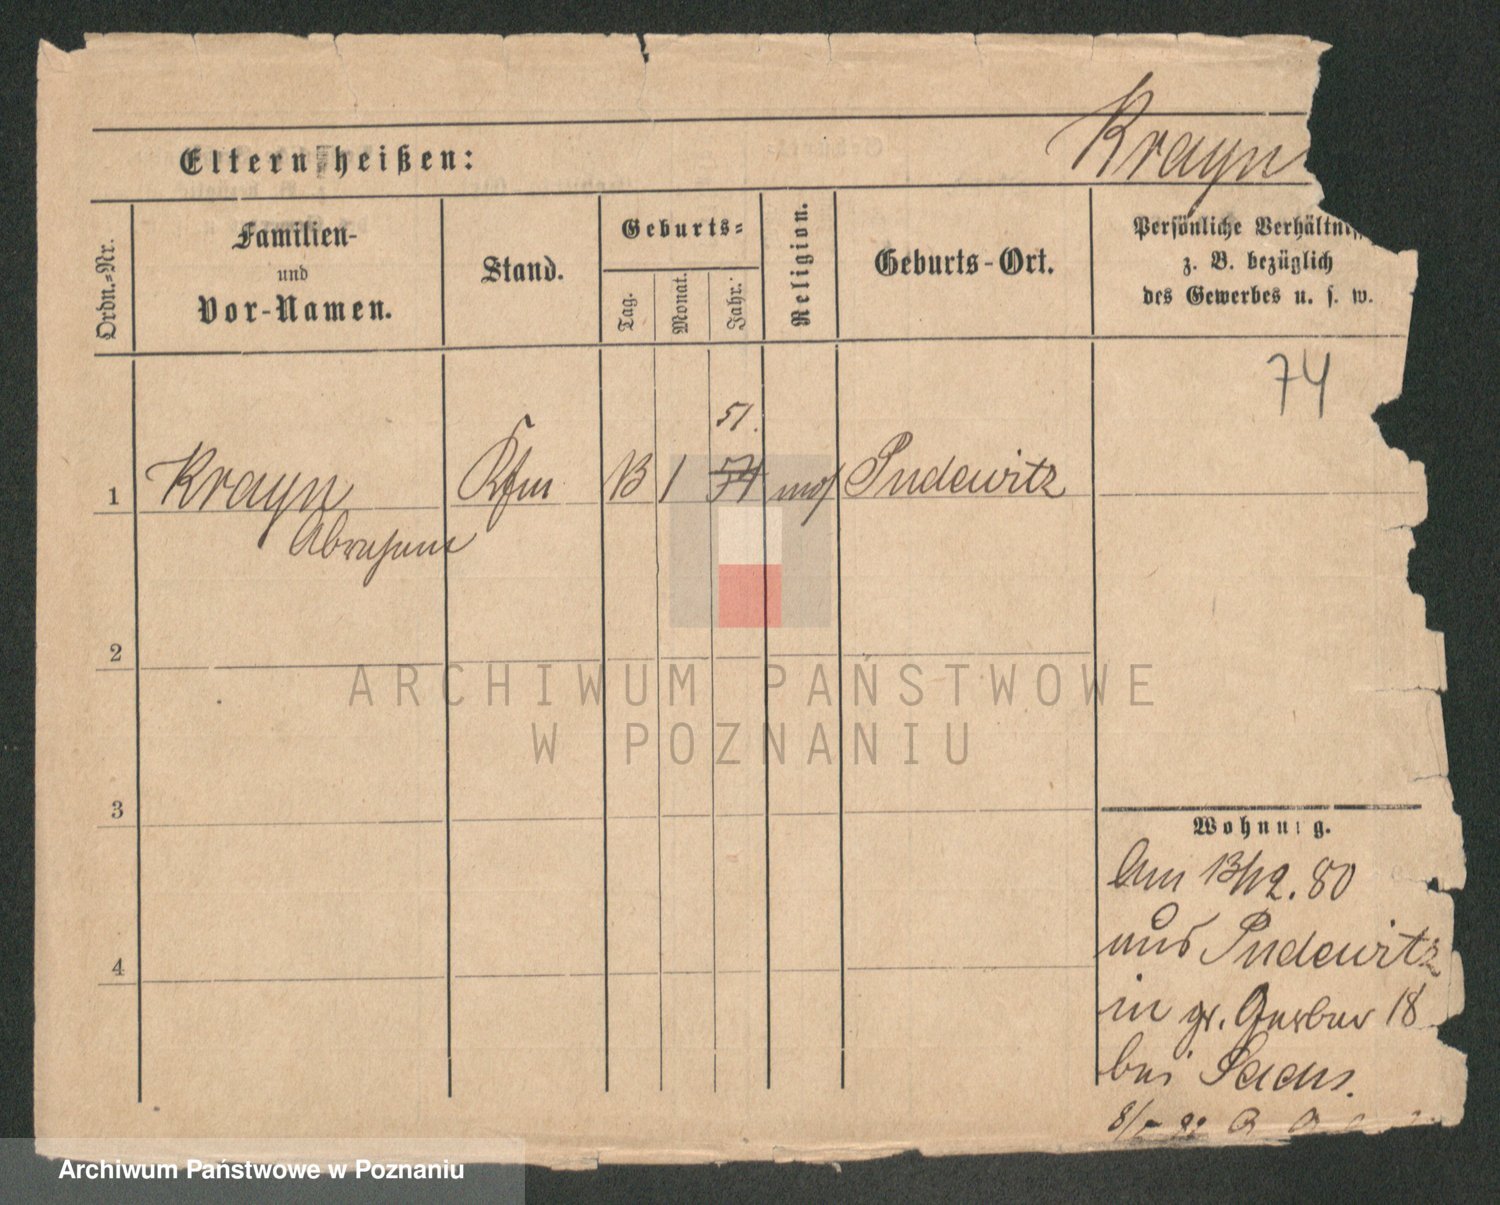 Krayn
Eltern heißen:
Ordn.-Nr.
Familien-
und
Vor-Namen.
Stand.
Geburts-
Tag.
Monat.
Jahr.
Religion.
Geburts-Ort.
Persönliche Verhältniss
z. B. bezüglich
des Gewerbes u. s. w.
74
51.
1 Krayn Kfm 13 1 54 mos Pudewitz
Abraham
2
3
4
Wohnung.
Am 13/12. 80
aus Pudewitz
in gr. Gerber 18
bei Sachs.
ARCHIWUM PAŃSTWOWE
W POZNANIU
Archiwum Państwowe w Poznaniu